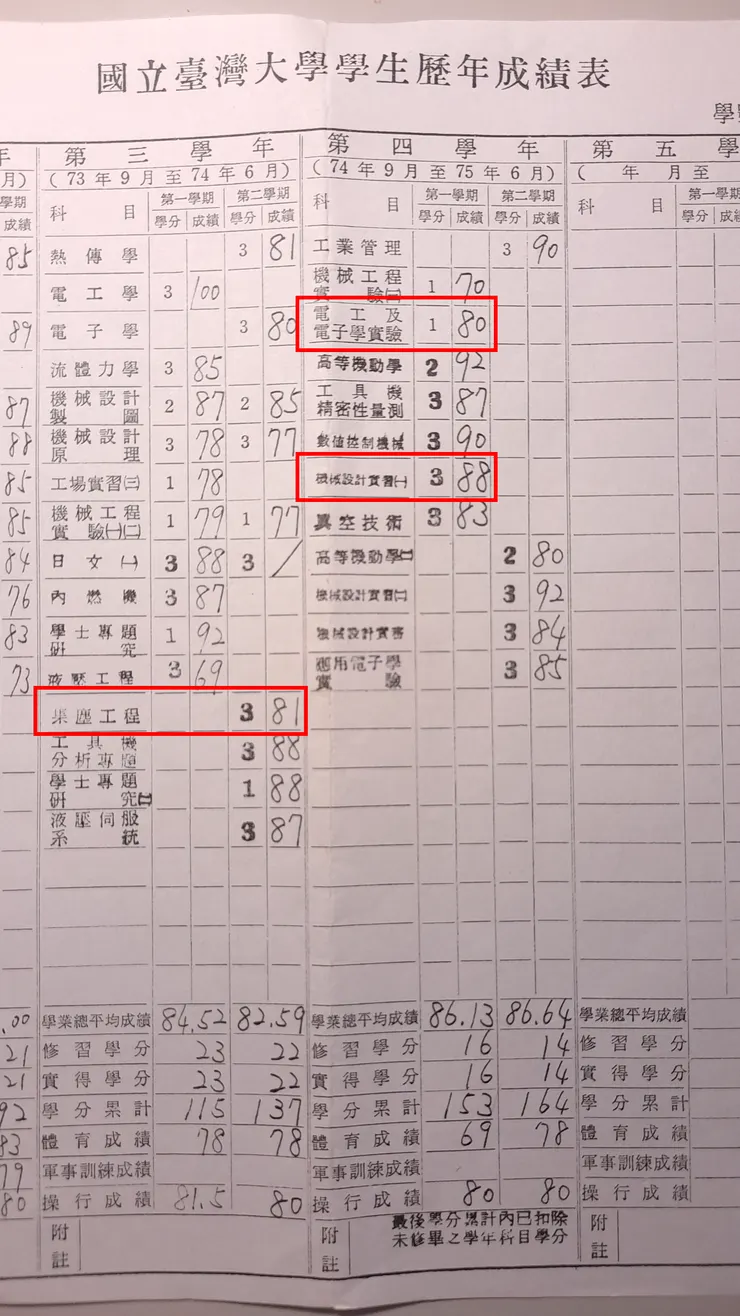 國立臺灣大學學生歷年成績表
學
年 第三學年 第四學年 第五學
月) (73年9月至74年6月) (74年9月至75年6月) (年 月至
學期 科目 第一學期 第二學期 科目 第一學期 第二學期 科目 第一學期
成績 學分 成績 學分 成績 學分 成績 學分 成績 學分 成績
85 熱傳學 3 81 工業管理 3 90
電工學 3 100 機械工程實驗㈢ 1 70
89 電子學 3 80 電工及電子學實驗 1 80
流體力學 3 85 高等機動學 2 92
87 機械設計製圖 2 87 2 85 工具機精密性量測 3 87
88 機械設計原理 3 78 3 77 數值控制機械 3 90
85 工場實習㈢ 1 78 機械設計實習㈠ 3 88
85 機械工程實驗㈠㈡ 1 79 1 77 真空技術 3 83
84 日文㈠ 3 88 3 / 高等機動學㈡ 2 80
76 內燃機 3 87 機械設計實習㈡ 3 92
83 學士專題研究 1 92 機械設計實務 3 84
73 液壓工程 3 69 應用電子學實驗 3 85
集塵工程 3 81
工具機分析專題 3 88
學士專題研究㈡ 1 88
液壓伺服系統 3 87
.00 學業總平均成績 84.52 82.59 學業總平均成績 86.13 86.64 學業總平均成績
21 修習學分 23 22 修習學分 16 14 修習學分
21 實得學分 23 22 實得學分 16 14 實得學分
92 學分累計 115 137 學分累計 153 164 學分累計
83 體育成績 78 78 體育成績 69 78 體育成績
79 軍事訓練成績 軍事訓練成績 軍事訓練成績
80 操行成績 81.5 80 操行成績 80 80 操行成績
附註 附註 最後學分累計內已扣除 附註
未修畢之學年科目學分